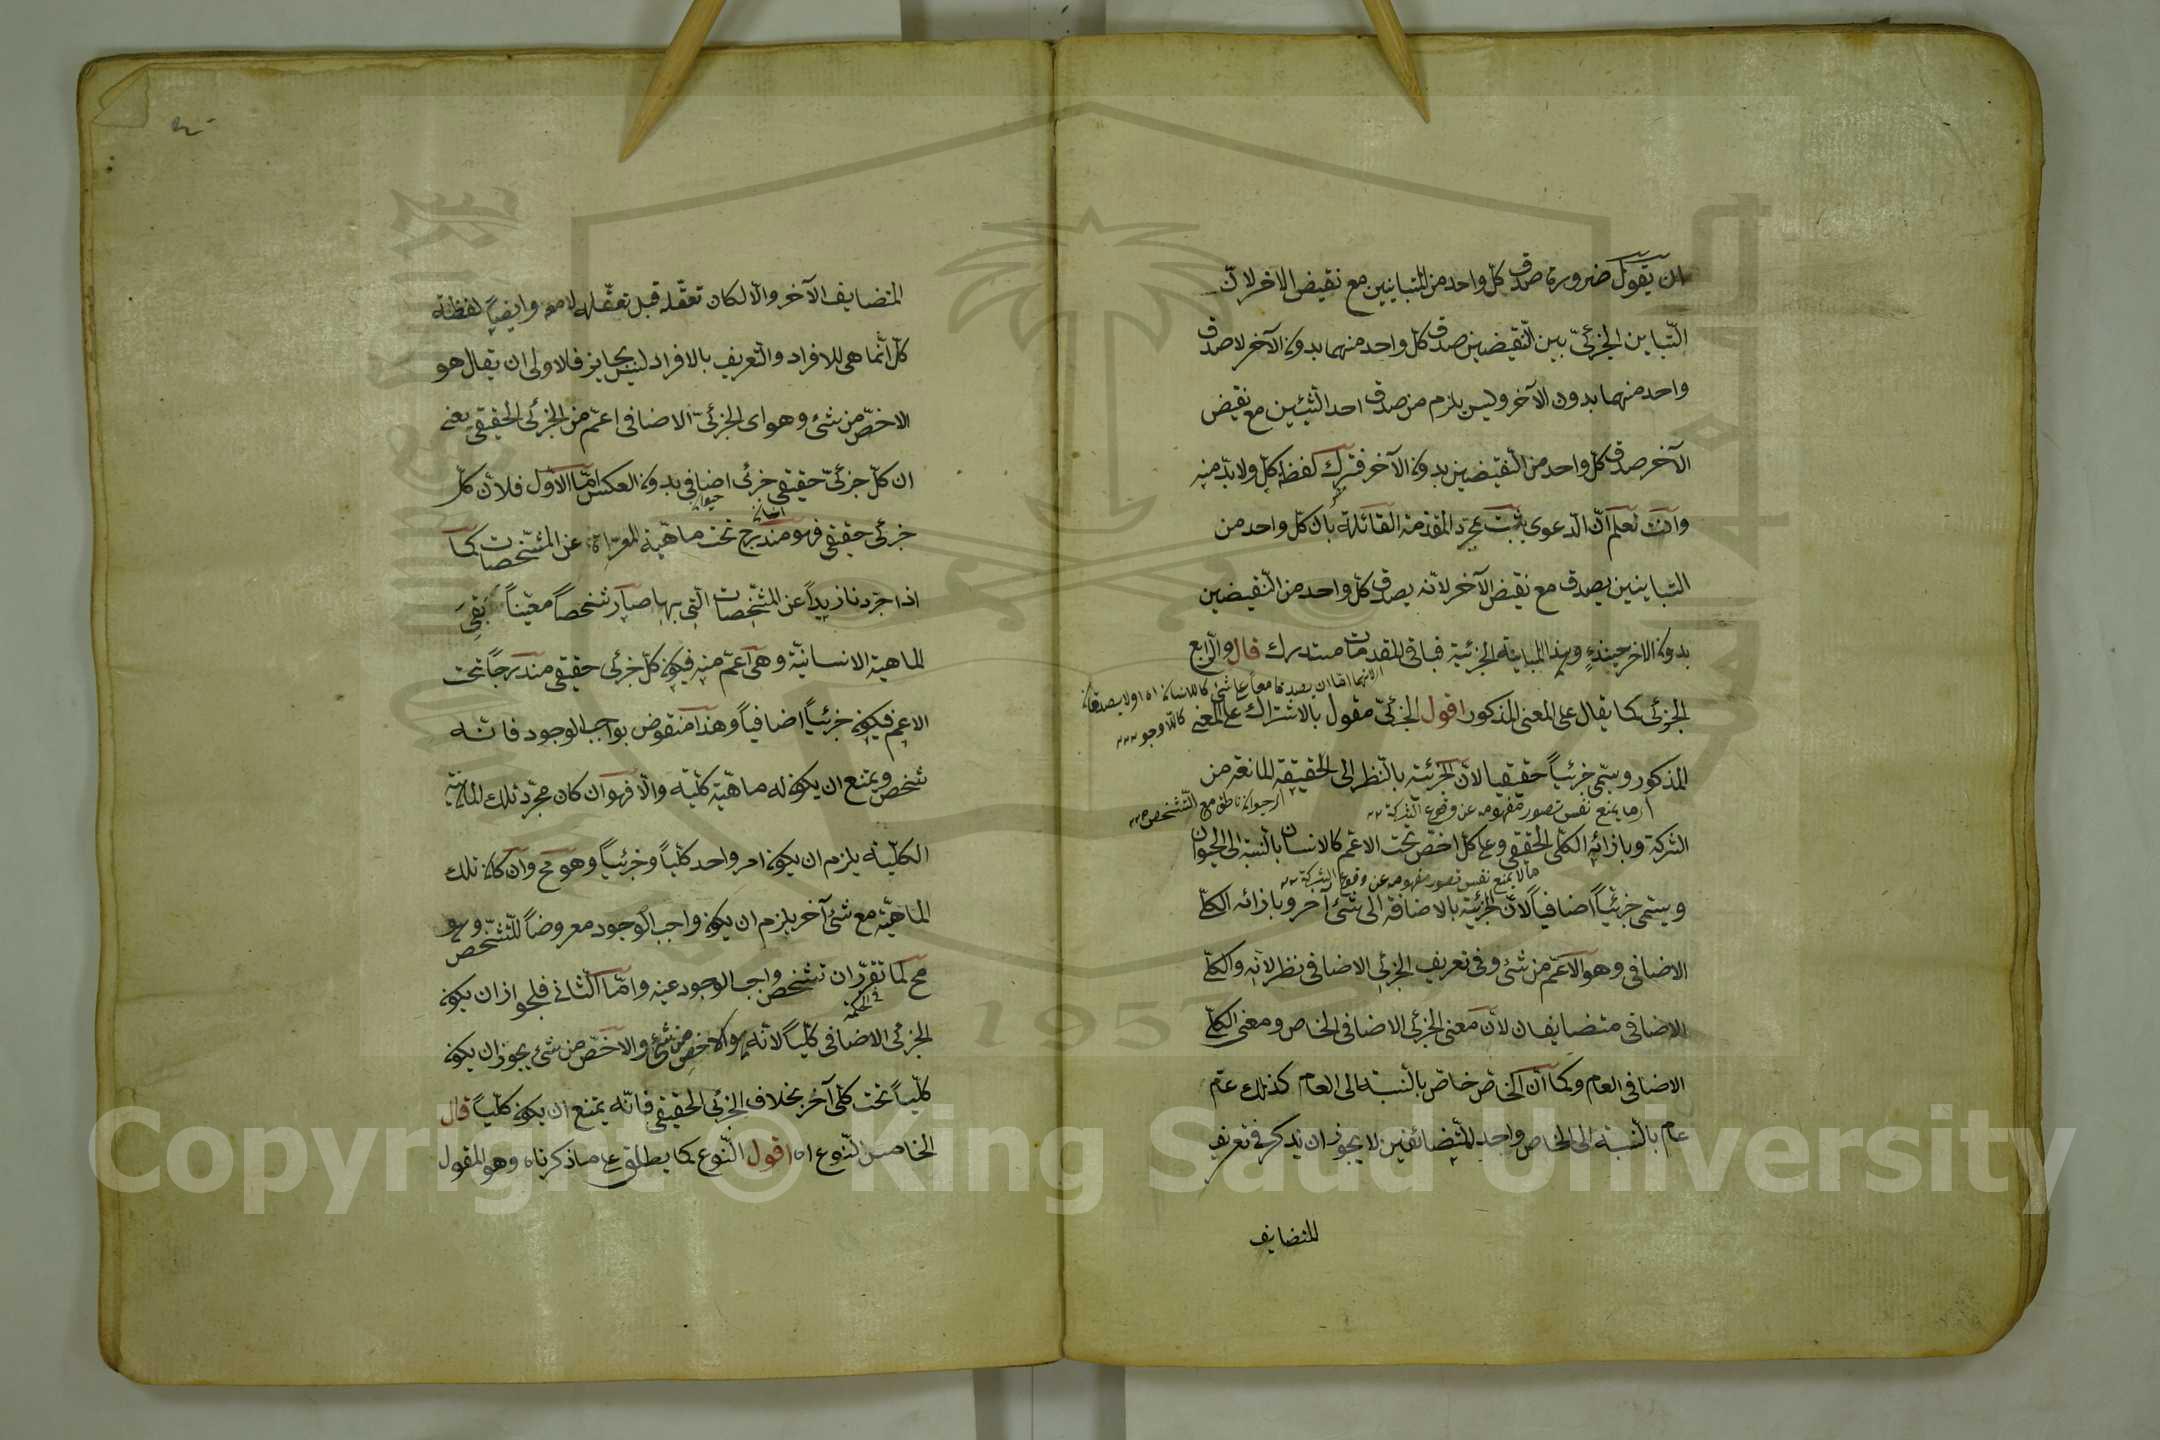 ان يقول ضرورة صدق كلّ واحد من المتباينين مع نقيض الاخر لانّ
التّباين الجزئىّ بين النّقيضين صدق كل واحد منهما بدون الآخر لا صدق
واحد منهما بدون الآخر وليس يلزم من صدق احد الشيئين مع نقيض
الآخر صدق كلّ واحد من النّقيضين بدون الآخر فترك لفظة كلّ ولا بدّ منه
وانت تعلم انّ الدّعوى يثبت بمجرّد المقدّمة القائلة بان كلّ واحد من
المتباينين يصدق مع نقيض الآخر لانّه يصدق كلّ واحد من النّقيضين
بدون الاخر حينئذٍ وهذا المباينة الجزئية فباقى المقدمات مستدرك قال والرّابع
الجزئى كما يقال على المعنى المذكور اقول الجزئىّ مقول بالاشتراك على المعنى
المذكور ويسمّى جزئيّاً حقيقيا لانّ الجزئية بالنّظر الى الحقيقة المانعة من
اى ما يمنع نفس تصور مفهومه عن وقوع الشركة
اى حيوان ناطق مع التّشخص
الشركة وبازائه الكلّى الحقيقى وعلى كلّ اخصّ تحت الاعمّ كالانسان بالنّسبة الى الحيوان
ما لا يمنع نفس تصور مفهومه عن وقوع الشركة
ويسمّى جزئيّاً اضافيّاً لانّ الجزئية بالاضافة الى شئ آخر وبازائه الكلّى
الاضافى وهو الاعمّ من شئ وفى تعريف الجزئى الاضافى نظر لانّه والكلّى
الاضافى متضايفان لانّ معنى الجزئى الاضافى الخاص ومعنى الكلّى
الاضافى العام وكما انّ الخاصّ خاصّ بالنّسبة الى العام كذلك عمّ
عام بالنّسبة الى الخاص واحد المتضائفين لا يجوز ان يذكر فى تعريف
المتضايف
المتضايف الآخر والّا لكان تعقّله قبل تعقّله لا معه وايضاً لفظة
كلّ انّما هى للافراد والتّعريف بالافراد ليس بجايز فالاولى ان يقال هو
الاخصّ من شئ وهو اى الجزئىّ الاضافى اعمّ من الجزئى الحقيقى يعنى
ان كلّ جزئىّ حقيقى جزئى اضافى بدون العكس امّا الاوّل فلانّ كلّ
جزئى حقيقى فهو مندرج تحت ماهيّة المعرّاة عن المشخّصات كما
اذا جرّدنا زيداً عن المشخّصات الّتى بها صار شخصاً معيّناً بَقِىَ
الماهية الانسانيّة وهى اعمّ منه فيكون كلّ جزئى حقيقى مندرجاً تحت
الاعمّ فيكون جزئيّاً اضافيّاً وهذا منقوض بواجب الوجود فانّه
شخص ويمتنع ان يكون له ماهيّة كلّية والّا فهو ان كان مجرّد تلك الماهيّة
الكلّية يلزم ان يكون امر واحد كلّياً وجزئيّاً وهو مح وان كان تلك
الماهيّة مع شئ آخر يلزم ان يكون واجب الوجود معروضاً للتّشخّص وهو
مح لما تقرّر ان تشخّص واجب الوجود عينه وامّا الثّانى فلجواز ان يكون
فى الحكمة
الجزئى الاضافى كلّياً لانّه هو الاخصّ من شئ والاخصّ من شئ يجوز ان يكون
كلّياً تحت كلّى آخر بخلاف الجزئى الحقيقى فانّه يمتنع ان يكون كلّياً قال
الخامس النّوع اه اقول النّوع كما يطلق على ما ذكرناه وهو المقول
1957
Copyright © King Saud University